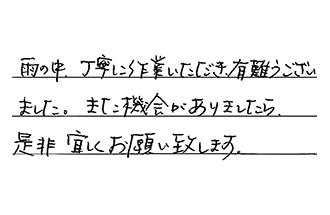 雨の中、丁寧に作業いただき、有難うござい
ました。またこ機会がありましたら、
是非宜しくお願い致します。